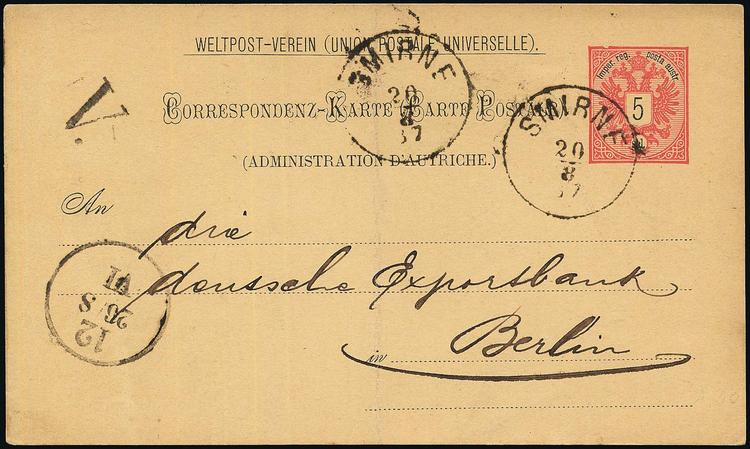 WELTPOST-VEREIN (UNION POSTALE UNIVERSELLE).
Imper. reg. posta austr.
5
CORRESPONDENZ-KARTE CARTE POSTALE
(ADMINISTRATION D'AUTRICHE.)
SMIRNE
20
8
87
SMIRNE
20
8
87
V.
An die
deutsche Exportbank
in Berlin
12
26/8
VI